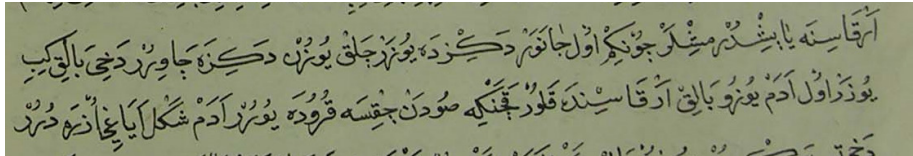 آرقاسنه يابشدرمشلر چونكم اول جانور دكزده يوزر خلق يوزن دكزه چاورر دخى بالق كيب
يوزر اول آدم يوزو بالق آرقاسنده قلور قچنكه صودن چقسه قروده يورر آدم شكل اياغى اُزره درر